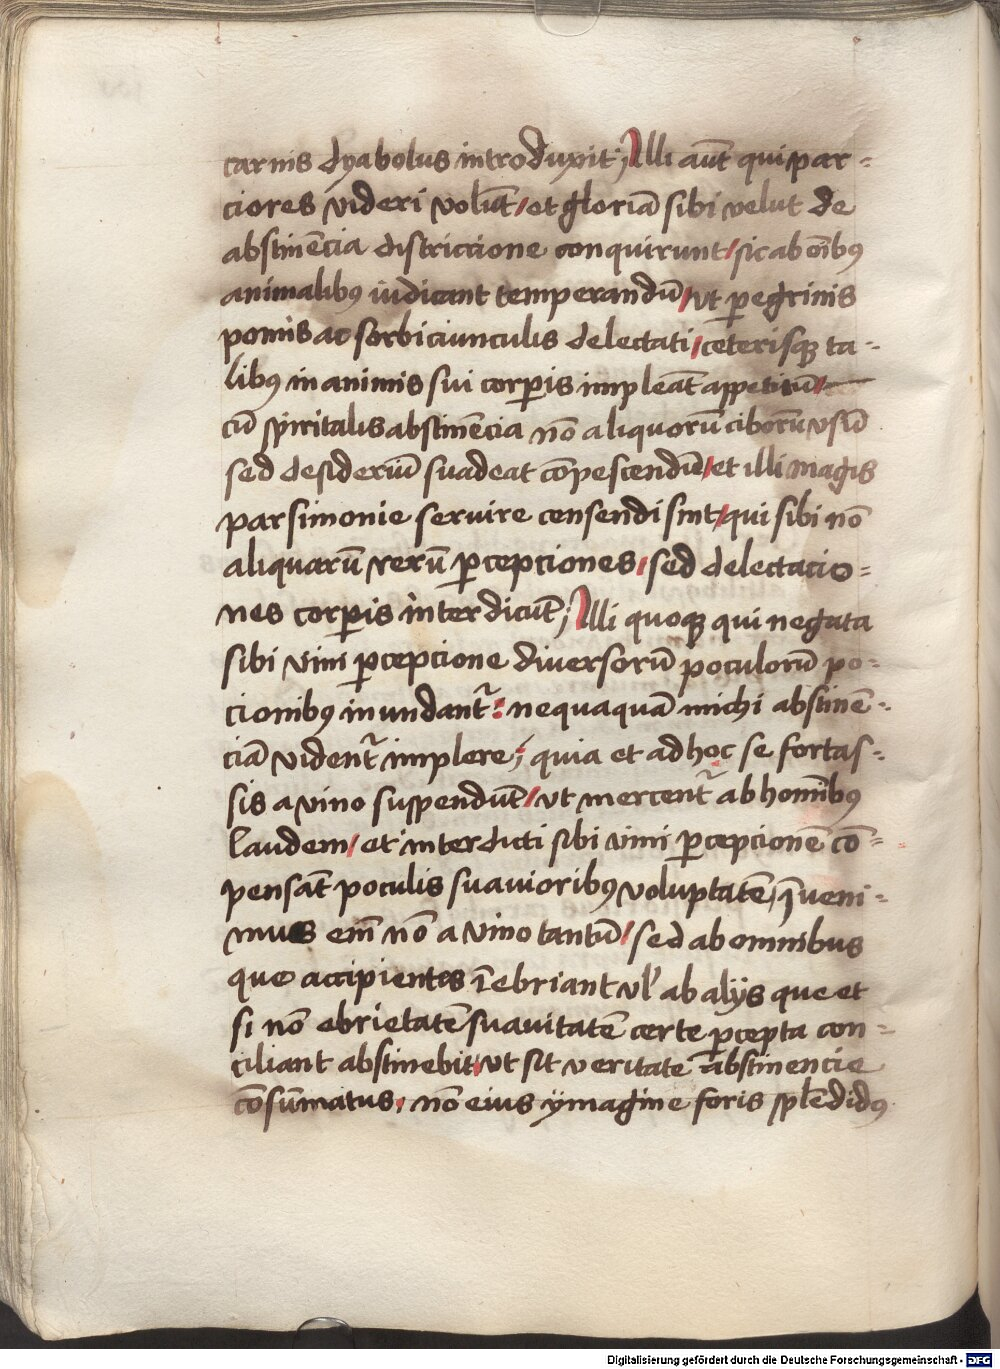 carnis dyabolus introduxit; Illi aūt qui par-
ciores videri volūt/et gloriā sibi velut de
abstinēcia districcione conquirunt/sic ab oībꝰ
animalibꝰ iudicant temperandū/ut ꝑegrinis
pomis ac sorbiciunculis delectati/ceterisqꝫ ta-
libꝰ in animis sui corꝑis impleāt appetitū/
cū spiritalis abstinēcia nō aliquorū ciborū vsū
sed desideriū suadeat cōpescendū/et illi magis
parsimonie seruire censendi sint/qui sibi nō
aliquarū rerū ꝑcepciones/sed delectacio-
nes corꝑis interdicūt; Illi quoqꝫ qui negata
sibi vini ꝑcepcione diversorū poculorū po-
cionibꝰ inundant᷑: nequaquā michi abstinē-
ciā vident᷑ implere; quia et ad hoc se fortas-
sis a vino suspendūt/ut mercent᷑ ab hominībꝰ
laudem/et interdicti sibi vini ꝑcepcionē cō-
pensāt poculis suauioribꝰ voluptatē, īveni-
mus em̄ nō a vino tantū/sed ab omnibus
que accipientes īebriant vl' ab alijs que et
si nō ebrietatē suauitatē certe ꝑcepta con-
ciliant abstinebit/ut sit veritate abstinencie
cōsūmatus, nō eius ymagine foris splēdidꝰ
Digitalisierung gefördert durch die Deutsche Forschungsgemeinschaft - DFG